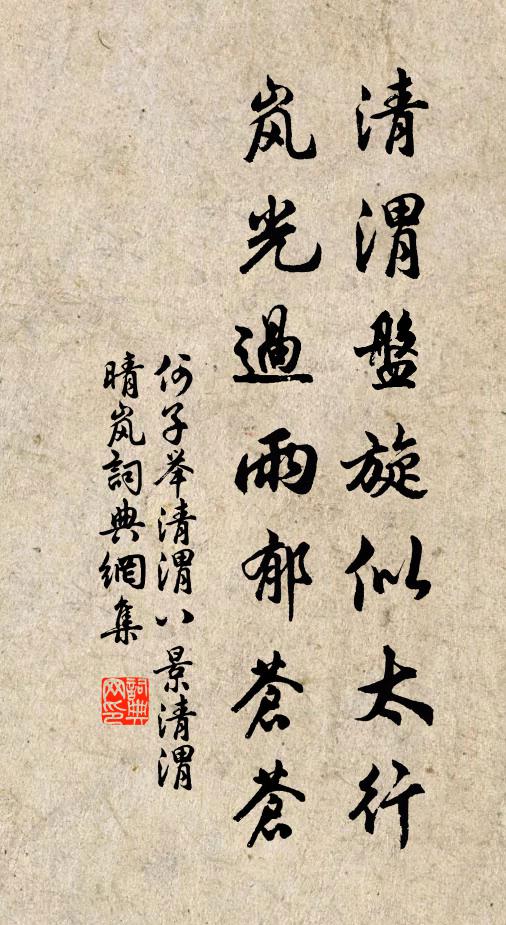 清渭盤旋似太行
岚光過雨郁蒼蒼
何子举清渭八景清渭
晴岚詞典網集
詞典网印